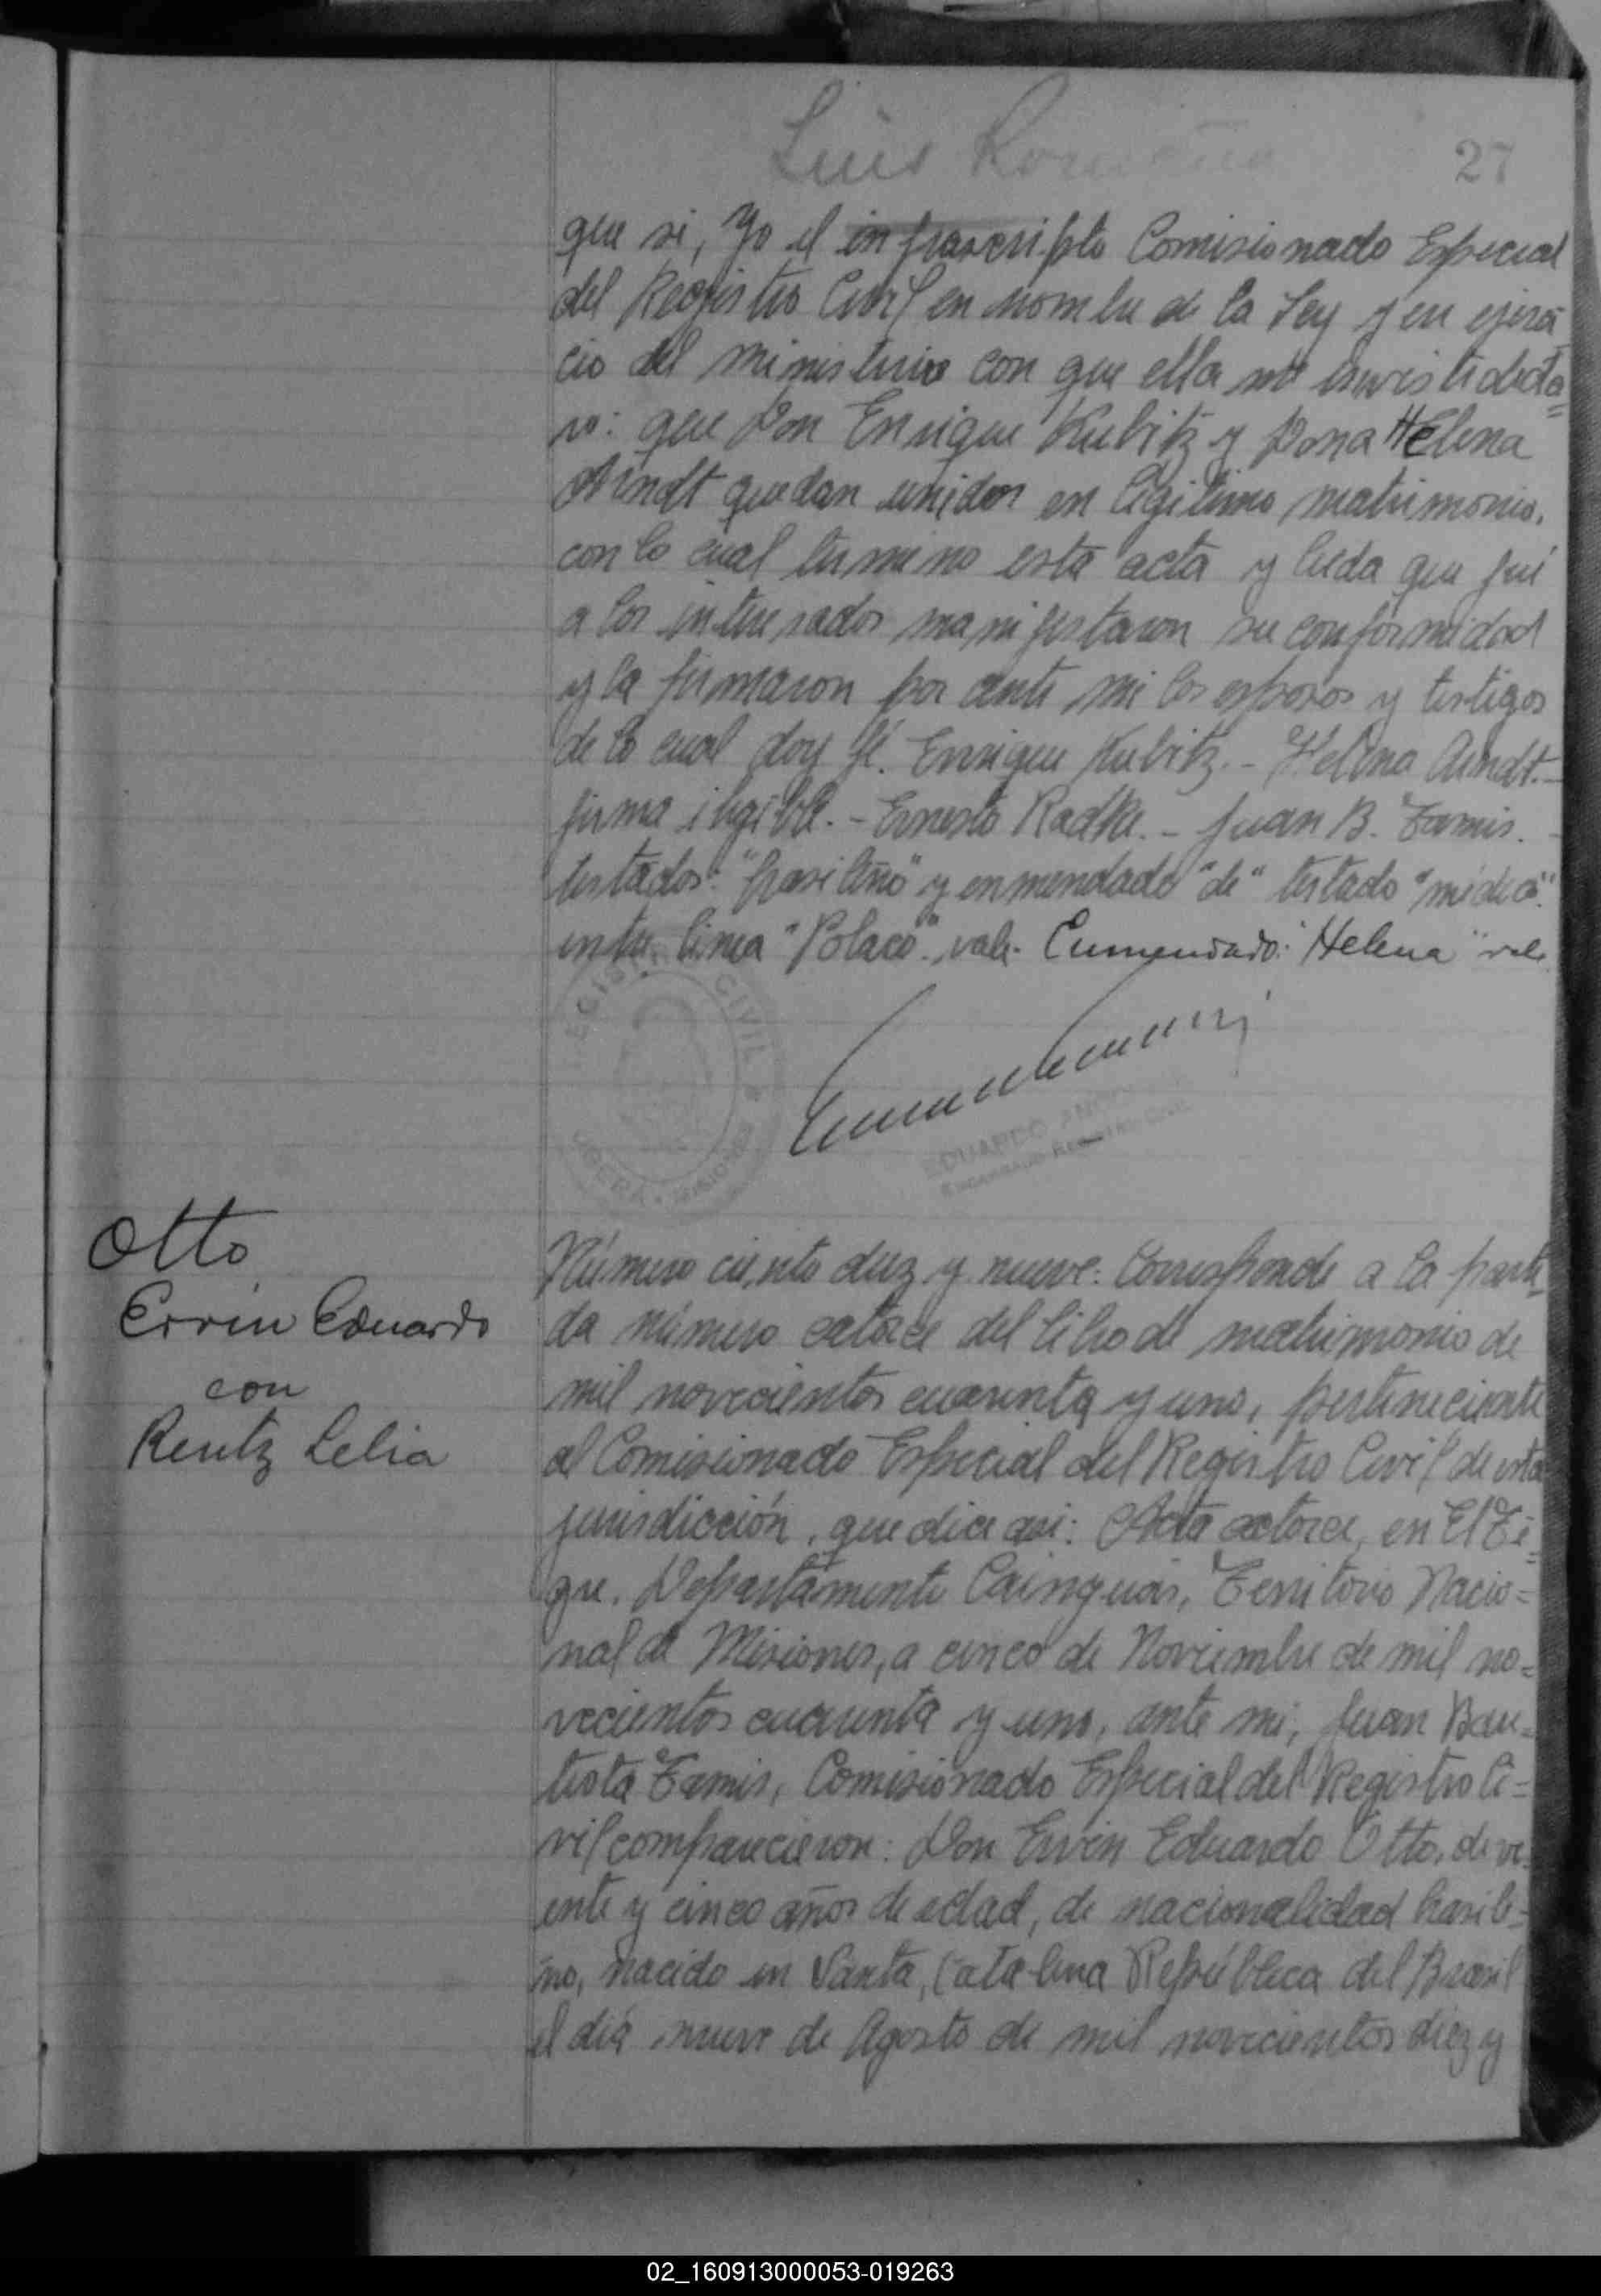 Luis
27
que si, Yo el infrascripto Comisionado Especial
del Registro Civil en nombre de la Ley y en ejerci
cio del ministerio con que ella me inviste decla=
ro: que Don Enrique Kubitz y Dona Helena
Arndt quedan unidos en legitimo matrimonio,
con lo cual termino esta acta y leida que fué
a los interesados manifestaron su conformidad
y la firmaron por ante mi los esposos y testigos
de lo cual doy fé. Enrique Kubitz. - Helena Arndt. -
firma ilegible. - Ernesto Radke. - Juan B. Tamis. -
testados: "brasileño" y enmendado "de" testado "médico".
entre linea "Polaco". vale. Enmendado: "Helena" vale.
REGISTRO CIVIL
OBERA - MISIONES
EDUARDO
Otto
Ervin Eduardo
con
Rentz Lelia
Número ciento diez y nueve: Corresponde a la parti_
da número catorce del libro de matrimonio de
mil novecientos cuarenta y uno, perteneciente
al Comisionado Especial del Registro Civil de esta
jurisdicción, que dice asi: Acta catorce, en El Ti=
gre, Departamento Cainguás, Territorio Nacio=
nal de Misiones, a cinco de Noviembre de mil no=
vecientos cuarenta y uno, ante mi, Juan Bau=
tista Tamis, Comisionado Especial del Registro Ci=
vil comparecieron: Don Ervin Eduardo Otto, de ve=
inte y cinco años de edad, de nacionalidad brasile=
ño, nacido en Santa, Catalina República del Brasil
el diá nueve de Agosto de mil novecientos diez y
02_160913000053-019263